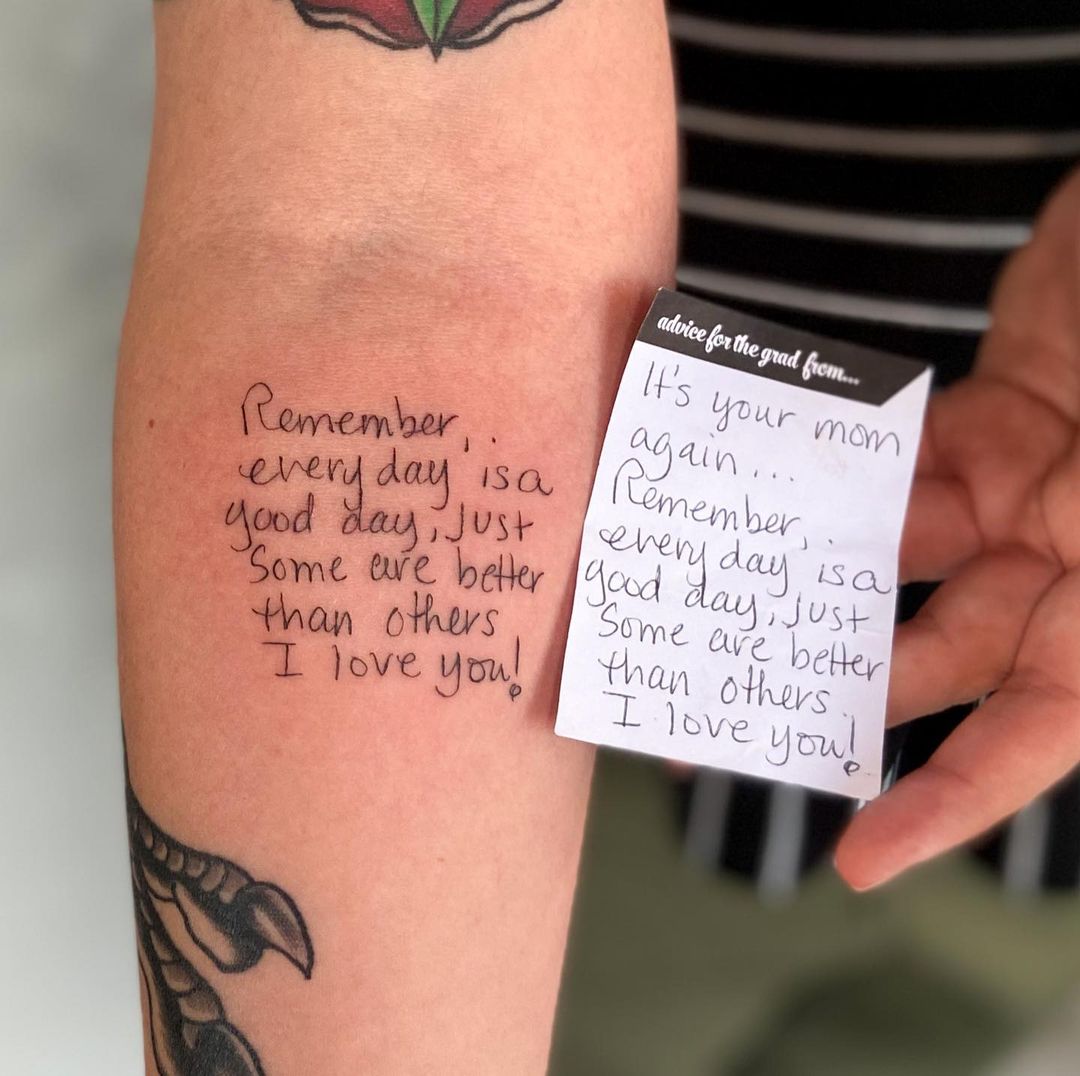 Remember,
every day is a
good day, just
Some are better
than others
I love you!
advice for the grad from...
It's your mom
again...
Remember,
every day is a
good day, just
Some are better
than others.
I love you!